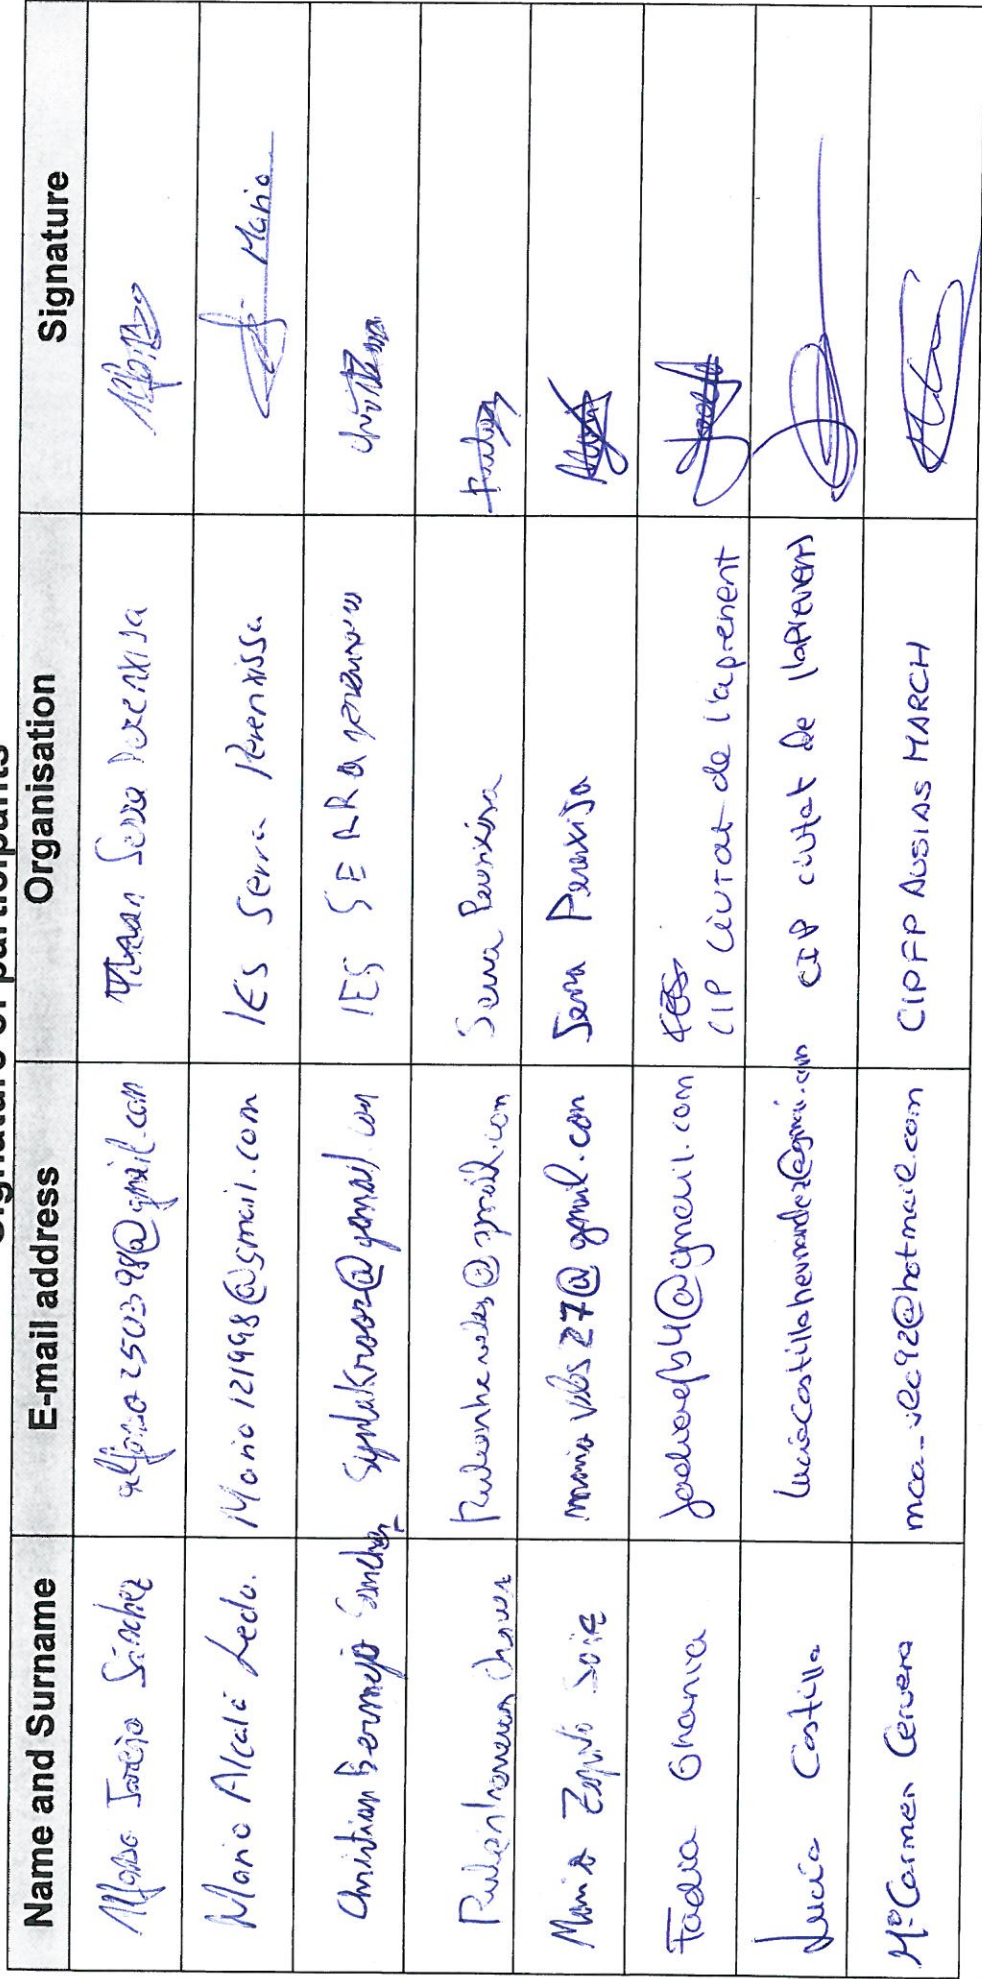 Signature of participants
Name and Surname E-mail address Organisation Signature
Alfonso Sánchez alfonso250398@gmail.com Serra Perenxisa Alfonso
Mario Alcalá Ledo. Mario121998@gmail.com IES Serra Perenxissa Mario
Christian Bermejo Sanchez @gmail.com IES SERRA perenxisa Christian
Ruben @gmail.com Serra Perenxisa Ruben
Maria @gmail.com Serra Perenxisa
Fadia Ghania @gmail.com CIP Ciutat de l'aprenent
Lucía Castilla luciacastillahernandez@gmail.com CIP ciutat de l'aprenent
Mª Carmen Cervera mca_vlc92@hotmail.com CIPFP AUSIAS MARCH